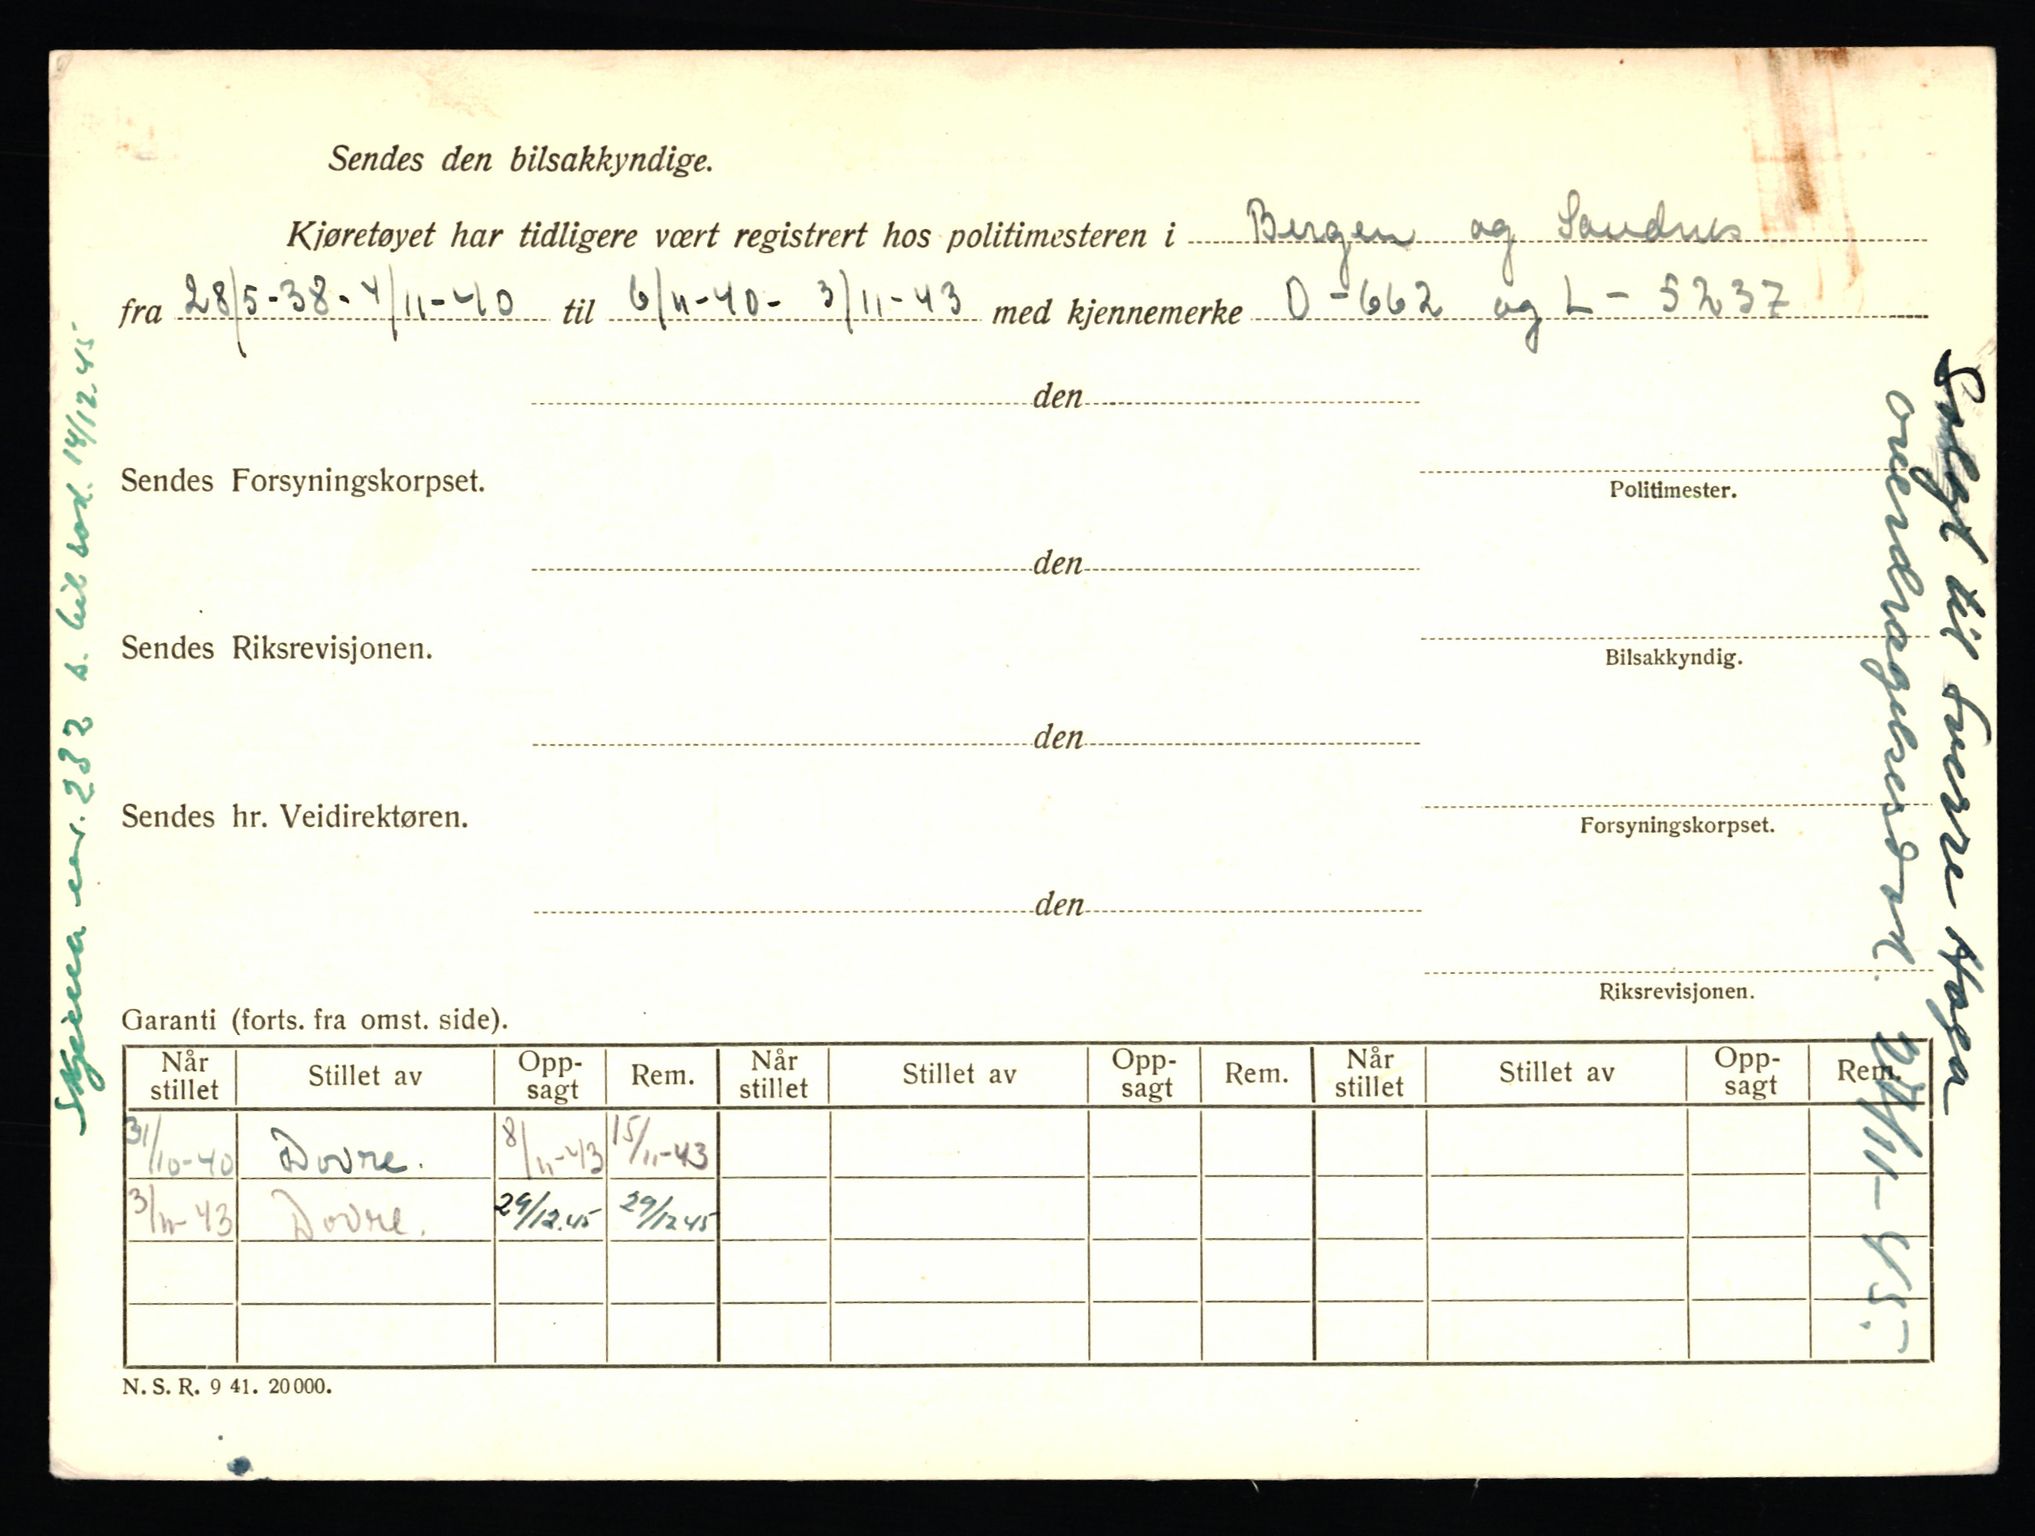 Sendes den bilsakkyndige.
Kjøretøyet har tidligere vært registrert hos politimesteren i Bergen og Sandnes
fra 28/5-38-4/11-40 til 6/11-40- 3/11-43 med kjennemerke O-662 og L-5237
den
Sendes Forsyningskorpset.
Politimester.
den
Sendes Riksrevisjonen.
Bilsakkyndig.
den
Sendes hr. Veidirektøren.
Forsyningskorpset.
den
Riksrevisjonen.
Garanti (forts. fra omst. side).
Når stillet Stillet av Opp-sagt Rem. Når stillet Stillet av Opp-sagt Rem. Når stillet Stillet av Opp-sagt Rem.
31/10-40 Dovre. 8/11-43 15/11-43
3/11-43 Dovre. 29/12.45 29/12 45
N. S. R. 9 41. 20000.
nr. 232 s. bil 14/12.45
Solgt til Sverre Haga
overdragelsesdok. /11-45.-